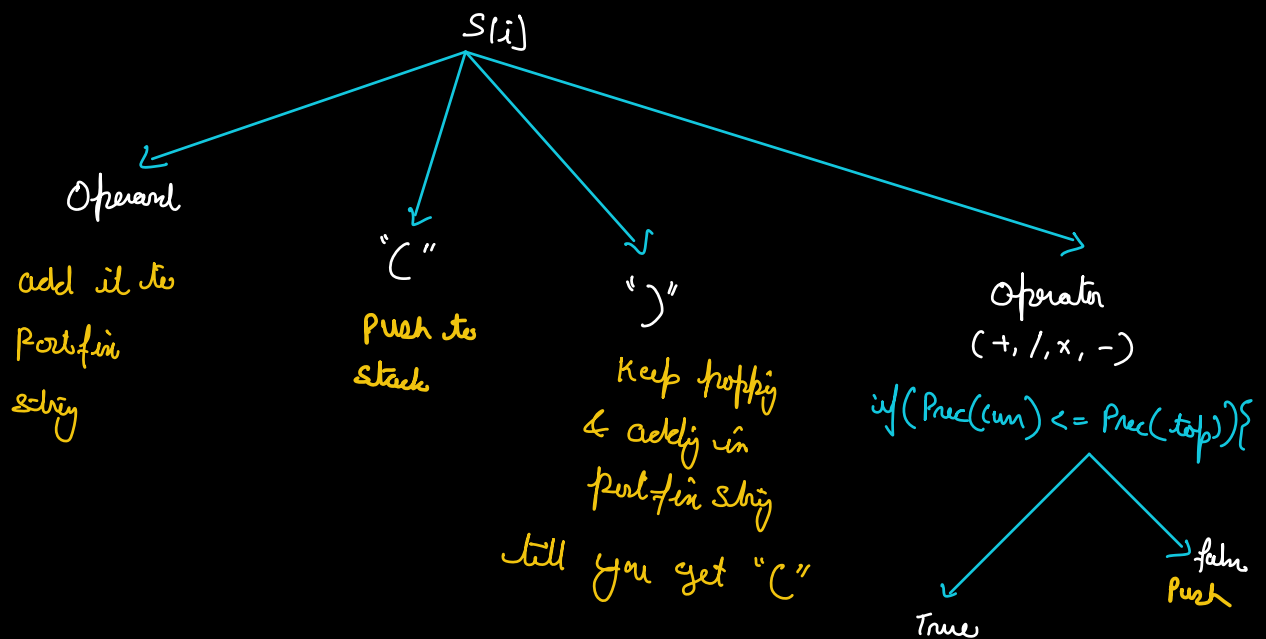 S[i]
Operand
add it to
Postfix
string
"("
Push to
stack
")"
Keep popping
& adding in
postfix string
till you get "("
Operator
(+, /, x, -)
if(Prec(curr) <= Prec(top)){
True
false
Push